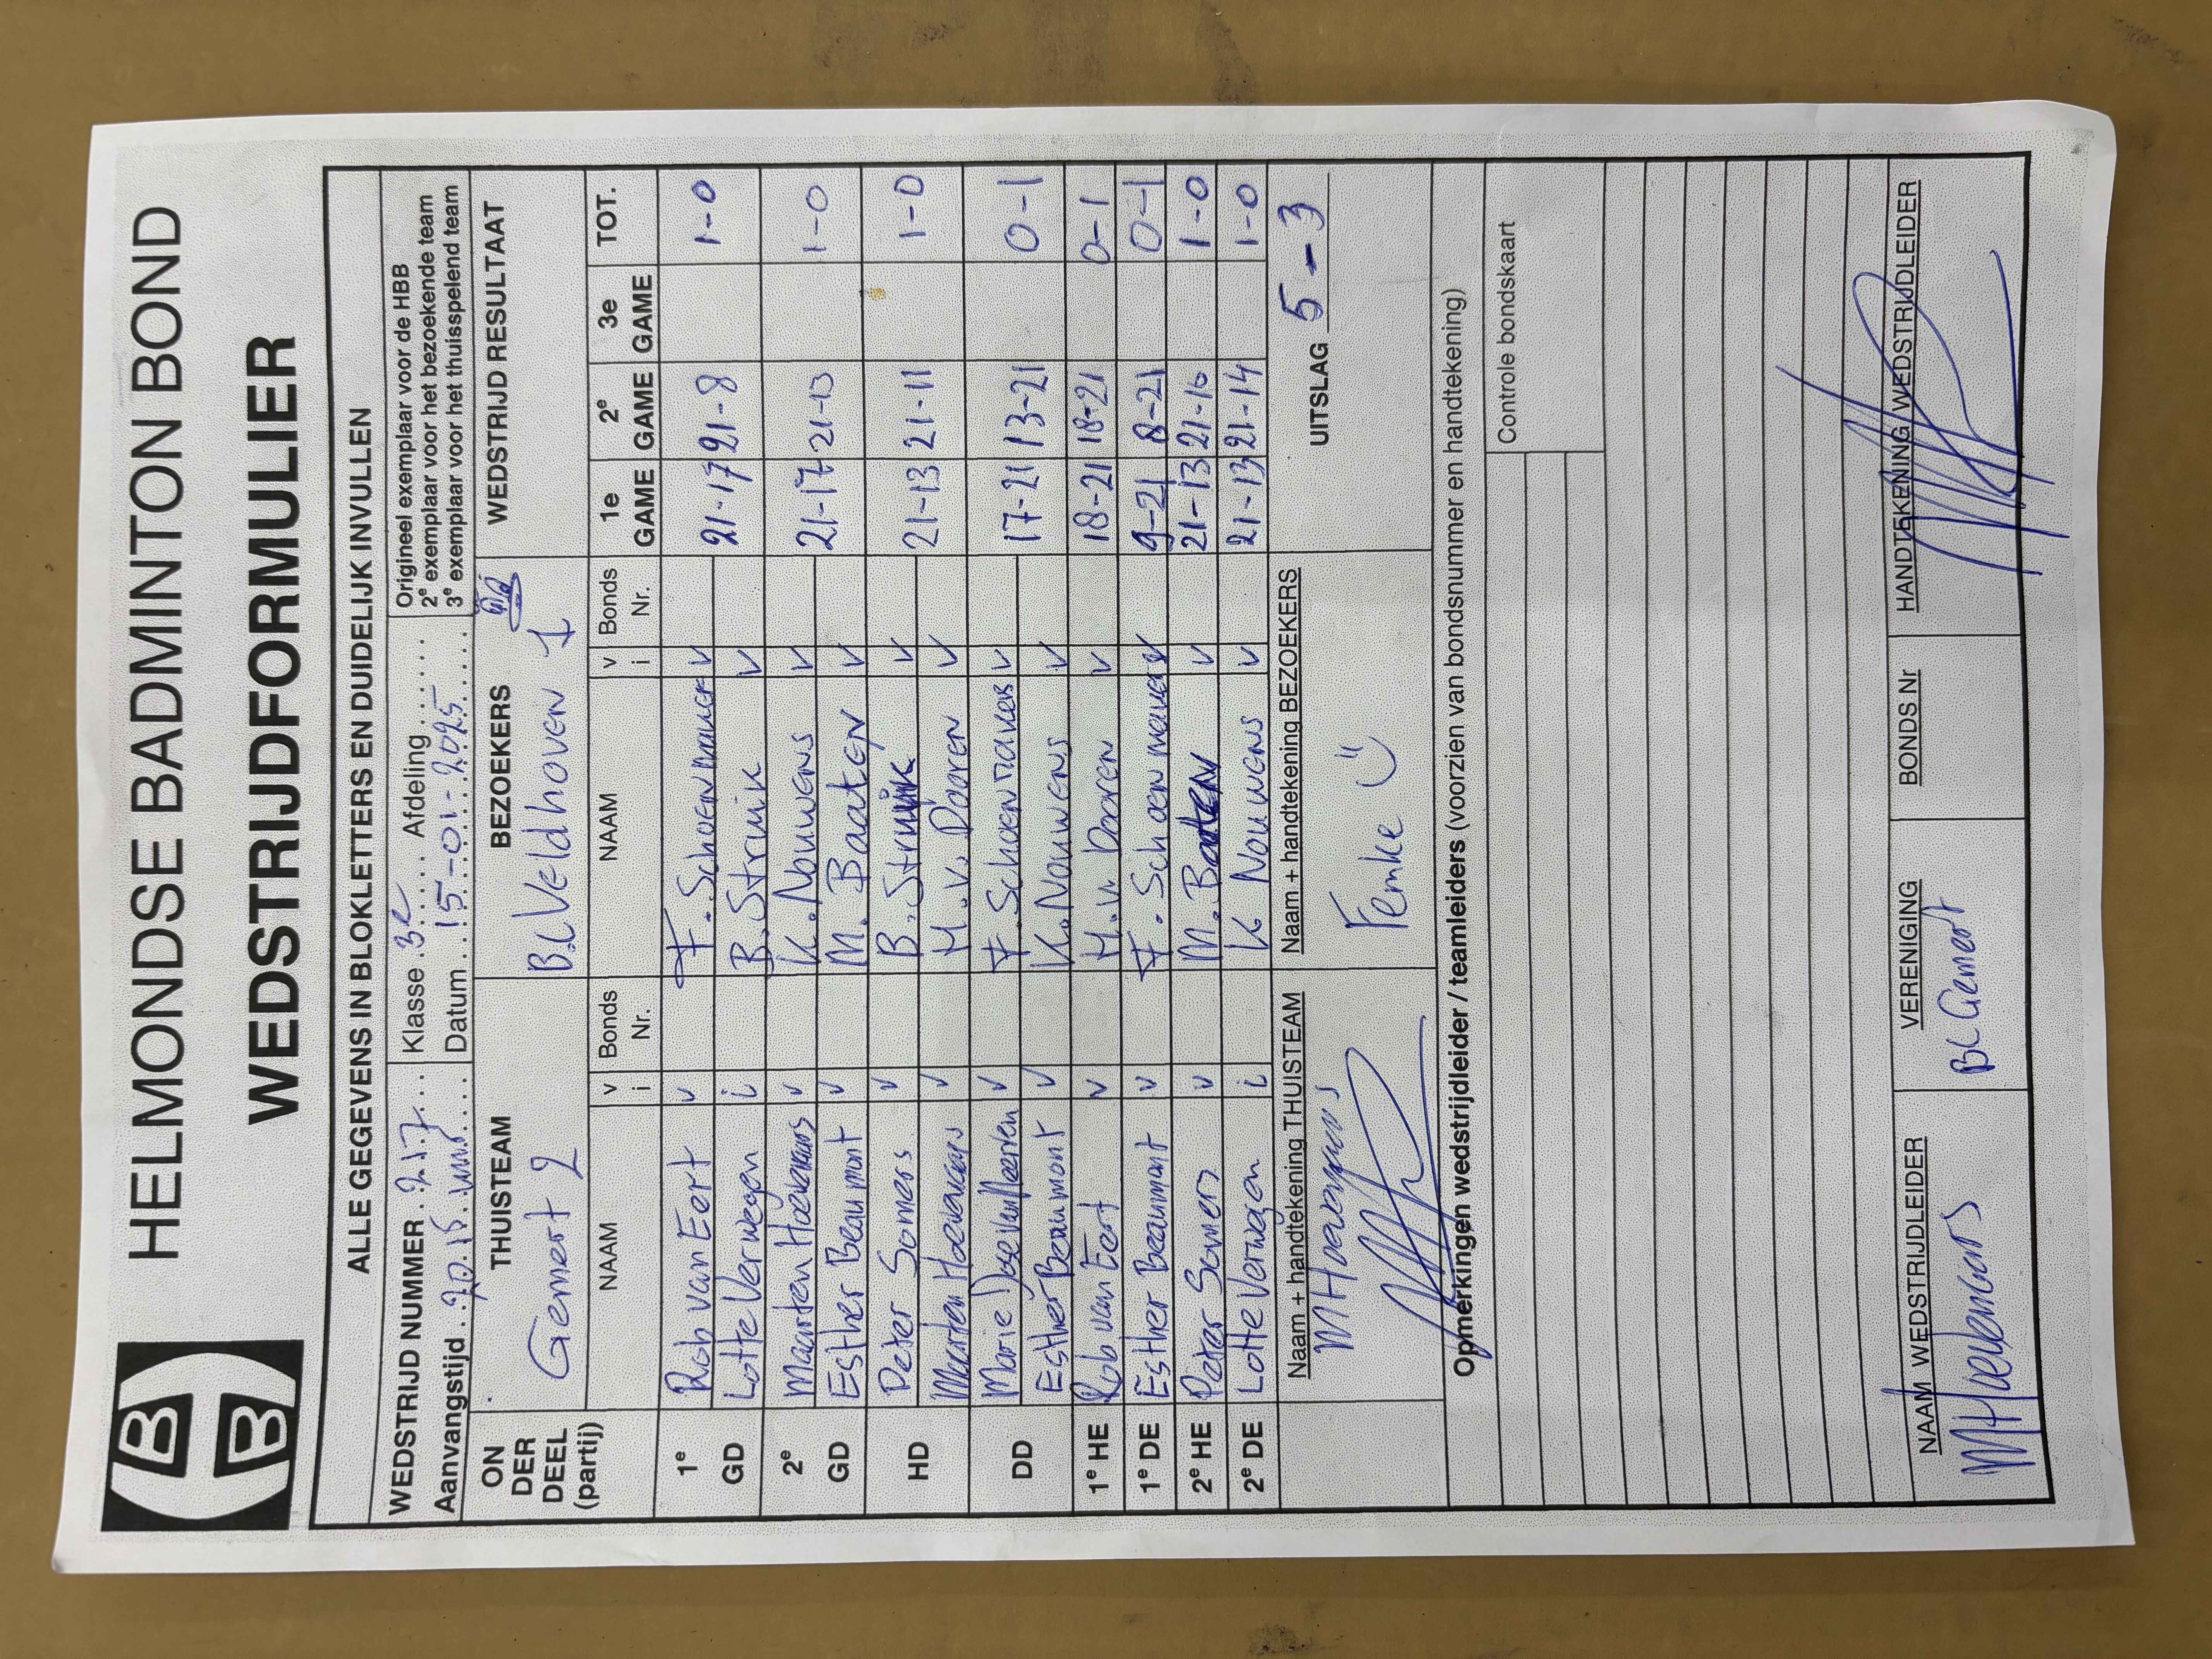 HELMONDSE BADMINTON BOND
WEDSTRIJDFORMULIER
ALLE GEGEVENS IN BLOKLETTERS EN DUIDELIJK INVULLEN
WEDSTRIJD NUMMER 217 Klasse 3e Afdeling
Aanvangstijd 20.15 uur Datum 15-01-2025
Origineel exemplaar voor de HBB
2e exemplaar voor het bezoekende team
3e exemplaar voor het thuisspelend team
ON DER DEEL (partij) THUISTEAM BEZOEKERS WEDSTRIJD RESULTAAT
Gemert 2 B.C. Veldhoven 1
NAAM v i Bonds Nr. NAAM v i Bonds Nr. 1e GAME 2e GAME 3e GAME TOT.
1e GD Rob van Eert v F. Schoenmakers v 21-17 21-8 1-0
Lotte Verwegen i B. Struik v
2e GD Maarten Hoevenaars v K. Nouwens v 21-17 21-13 1-0
Esther Beaumont v M. Baaten v
HD Peter Somers v B. Struik v 21-13 21-11 1-0
Maarten Hoevenaars v H. v. Dooren v
DD Marie v F. Schoenmakers v 17-21 13-21 0-1
Esther Beaumont v K. Nouwens v
1e HE Rob van Eert v H. v. Dooren v 18-21 18-21 0-1
1e DE Esther Beaumont v F. Schoenmakers v 9-21 8-21 0-1
2e HE Peter Somers v M. Baaten v 21-13 21-16 1-0
2e DE Lotte Verwegen i K Nouwens v 21-13 21-14 1-0
Naam + handtekening THUISTEAM Naam + handtekening BEZOEKERS
M Hoevenaars Femke UITSLAG 5-3
Opmerkingen wedstrijdleider / teamleiders (voorzien van bondsnummer en handtekening)
Controle bondskaart
NAAM WEDSTRIJDLEIDER VERENIGING BONDS Nr HANDTEKENING WEDSTRIJDLEIDER
M Hoevenaars BC Gemert